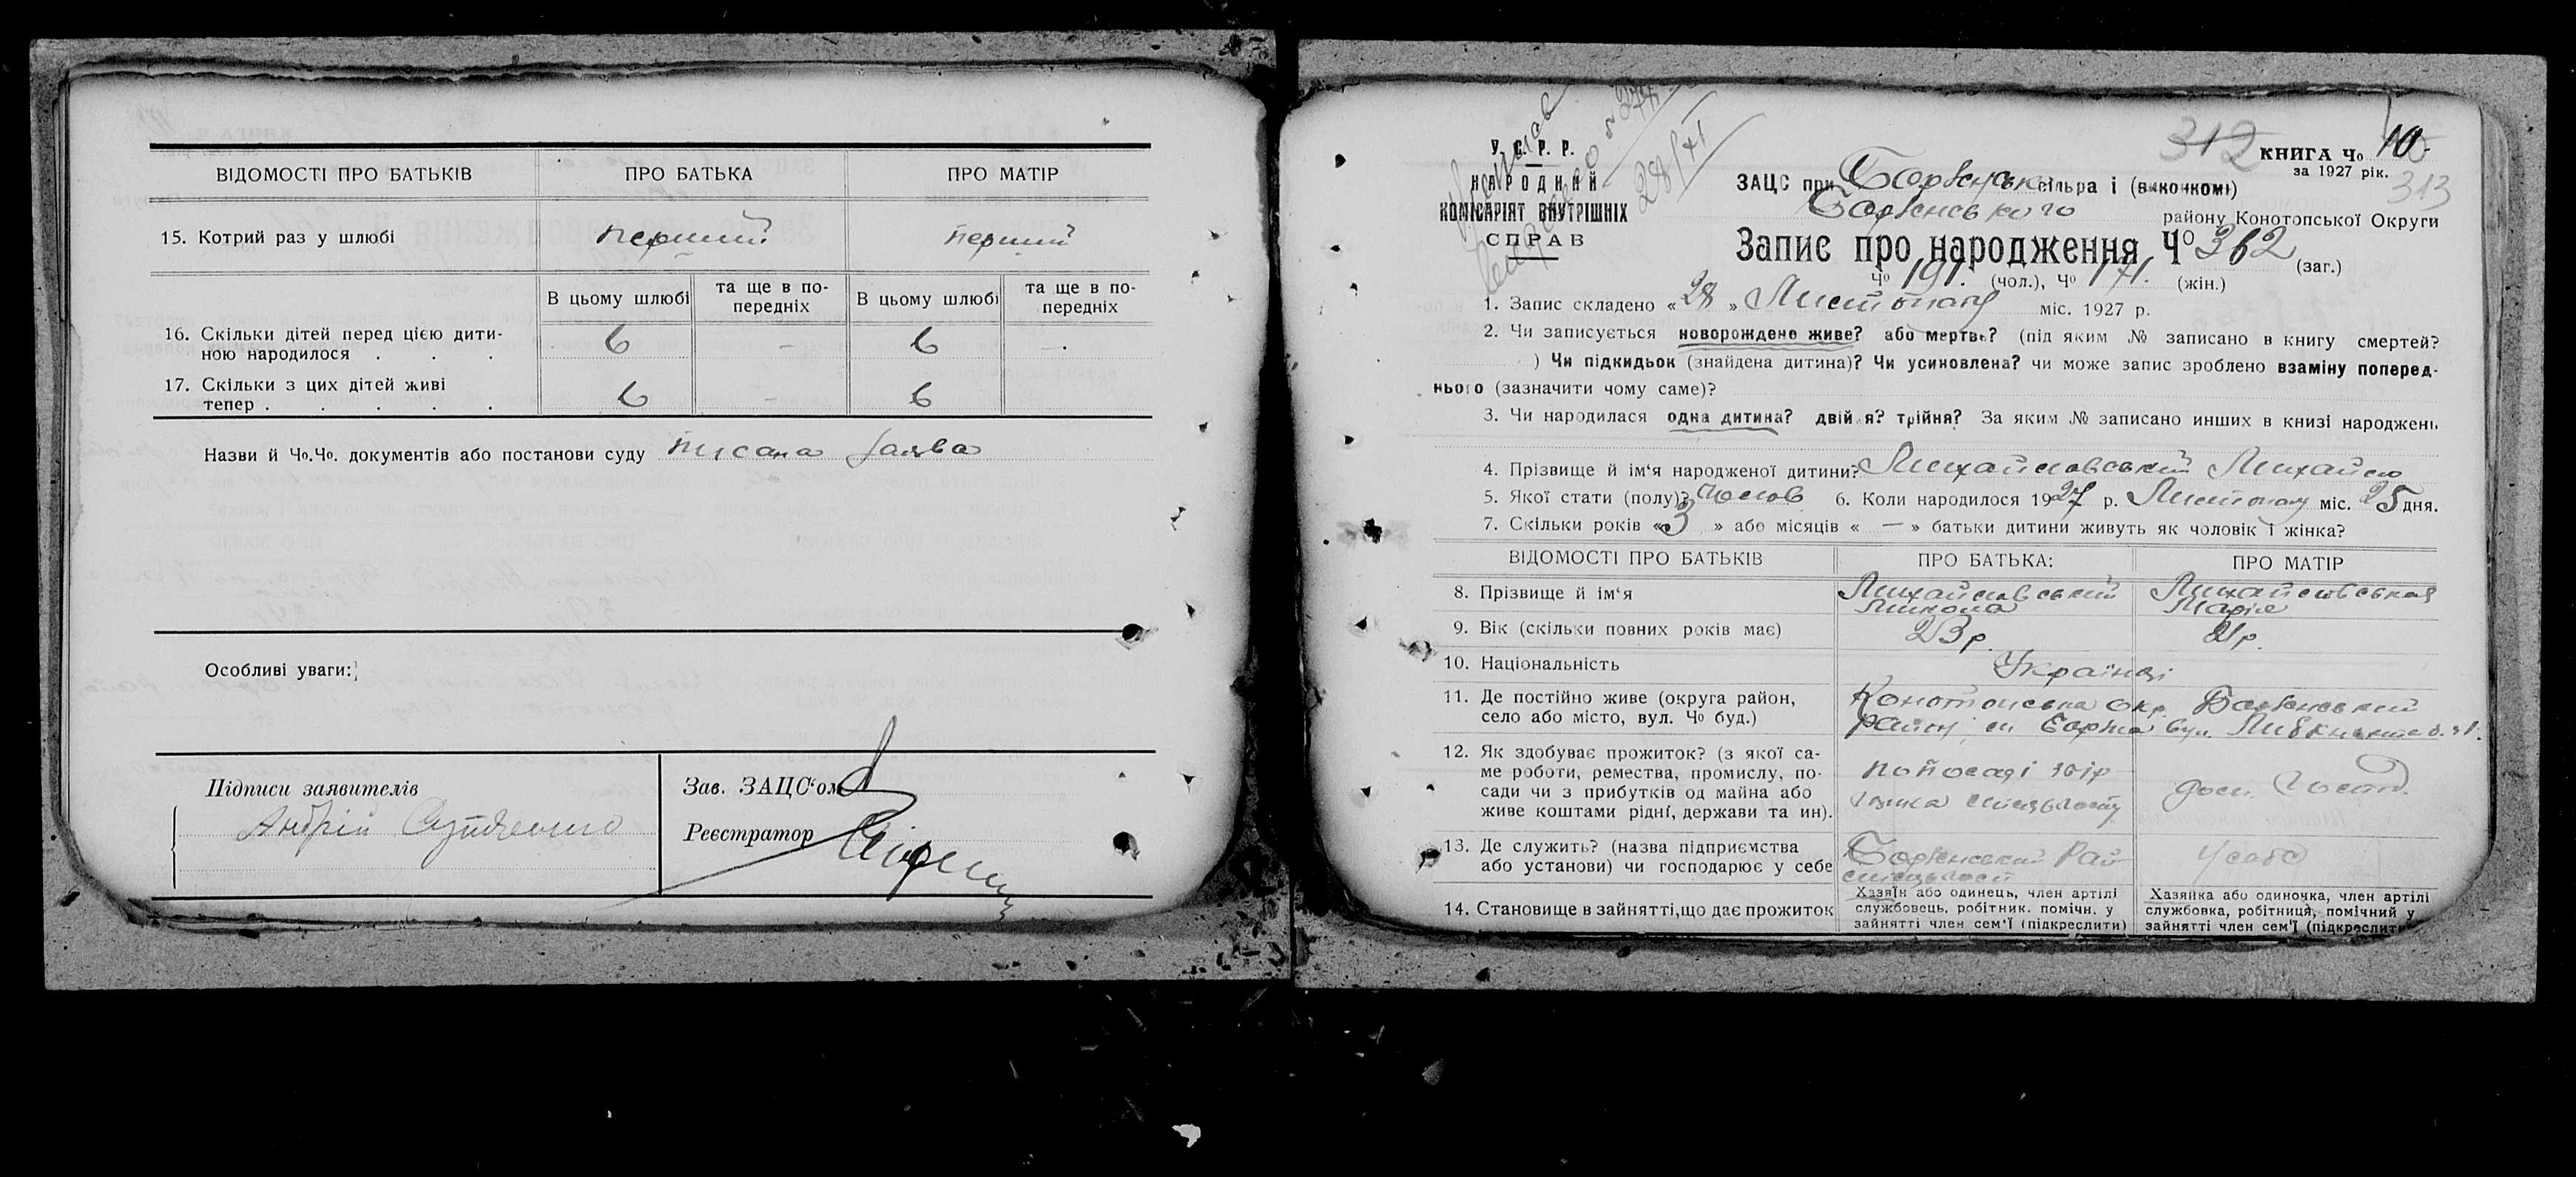 ВІДОМОСТІ ПРО БАТЬКІВ ПРО БАТЬКА ПРО МАТІР
15. Котрий раз у шлюбі перший перший
В цьому шлюбі та ще в по-передніх В цьому шлюбі та ще в по-передніх
16. Скільки дітей перед цією дити-
ною народилося . . . 6 - 6 -.
17. Скільки з цих дітей живі
тепер . . . . . 6 - 6
Назви й Чо.Чо. документів або постанови суду писана заява
Особливі уваги:
Підписи заявителів
Андрій
Зав. ЗАЦС'ом
Реєстратор
У. С. Р. Р.
НАРОДНИЙ
КОМІСАРІЯТ ВНУТРІШНІХ
СПРАВ
28/XI
312 КНИГА Чо 10
за 1927 рік.
313
ЗАЦС при Борзенськ сільра і (виконкомі)
Борзенського району Конотопської Округи
Запис про народження Чо 362 (заг.)
Чо 191. (чол.), Чо 171. (жін.)
1. Запис складено «28» Листопаду міс. 1927 р.
2. Чи записується новорождене живе? або мертве? (під яким № записано в книгу смертей?
) Чи підкидьок (знайдена дитина)? Чи усиновлена? чи може запис зроблено взаміну поперед-
нього (зазначити чому саме)?
3. Чи народилася одна дитина? двійня? трійня? За яким № записано инших в книзі народжень
4. Прізвище й ім'я народженої дитини? Михайловський Михайло
5. Якої стати (полу)? чолов 6. Коли народилося 1927 р. Листопаду міс. 25 дня.
7. Скільки років «3» або місяців « — » батьки дитини живуть як чоловік і жінка?
ВІДОМОСТІ ПРО БАТЬКІВ ПРО БАТЬКА: ПРО МАТІР
8. Прізвище й ім'я Михайловський Михайловська
Микола Марія
9. Вік (скільки повних років має) 23 р. 21 р.
10. Національність Українці
11. Де постійно живе (округа район,
село або місто, вул. Чо буд.)
Конотопська окр. Борзенський
район м Борзна вул.
12. Як здобуває прожиток? (з якої са-
ме роботи, ремества, промислу, по-
сади чи з прибутків од майна або
живе коштами рідні, держави та ин).
по посаді
дом. госпд.
13. Де служить? (назва підприємства
або установи) чи господарює у себе
Борзенський Рай
У себе
14. Становище в зайнятті, що дає прожиток
Хазяїн або одинець, член артілі
службовець, робітник, помічн. у
зайнятті член сем'ї (підкреслити)
Хазяйка або одиночка, член артілі
службовка, робітниця, помічний у
зайнятті член сем'ї (підкреслити